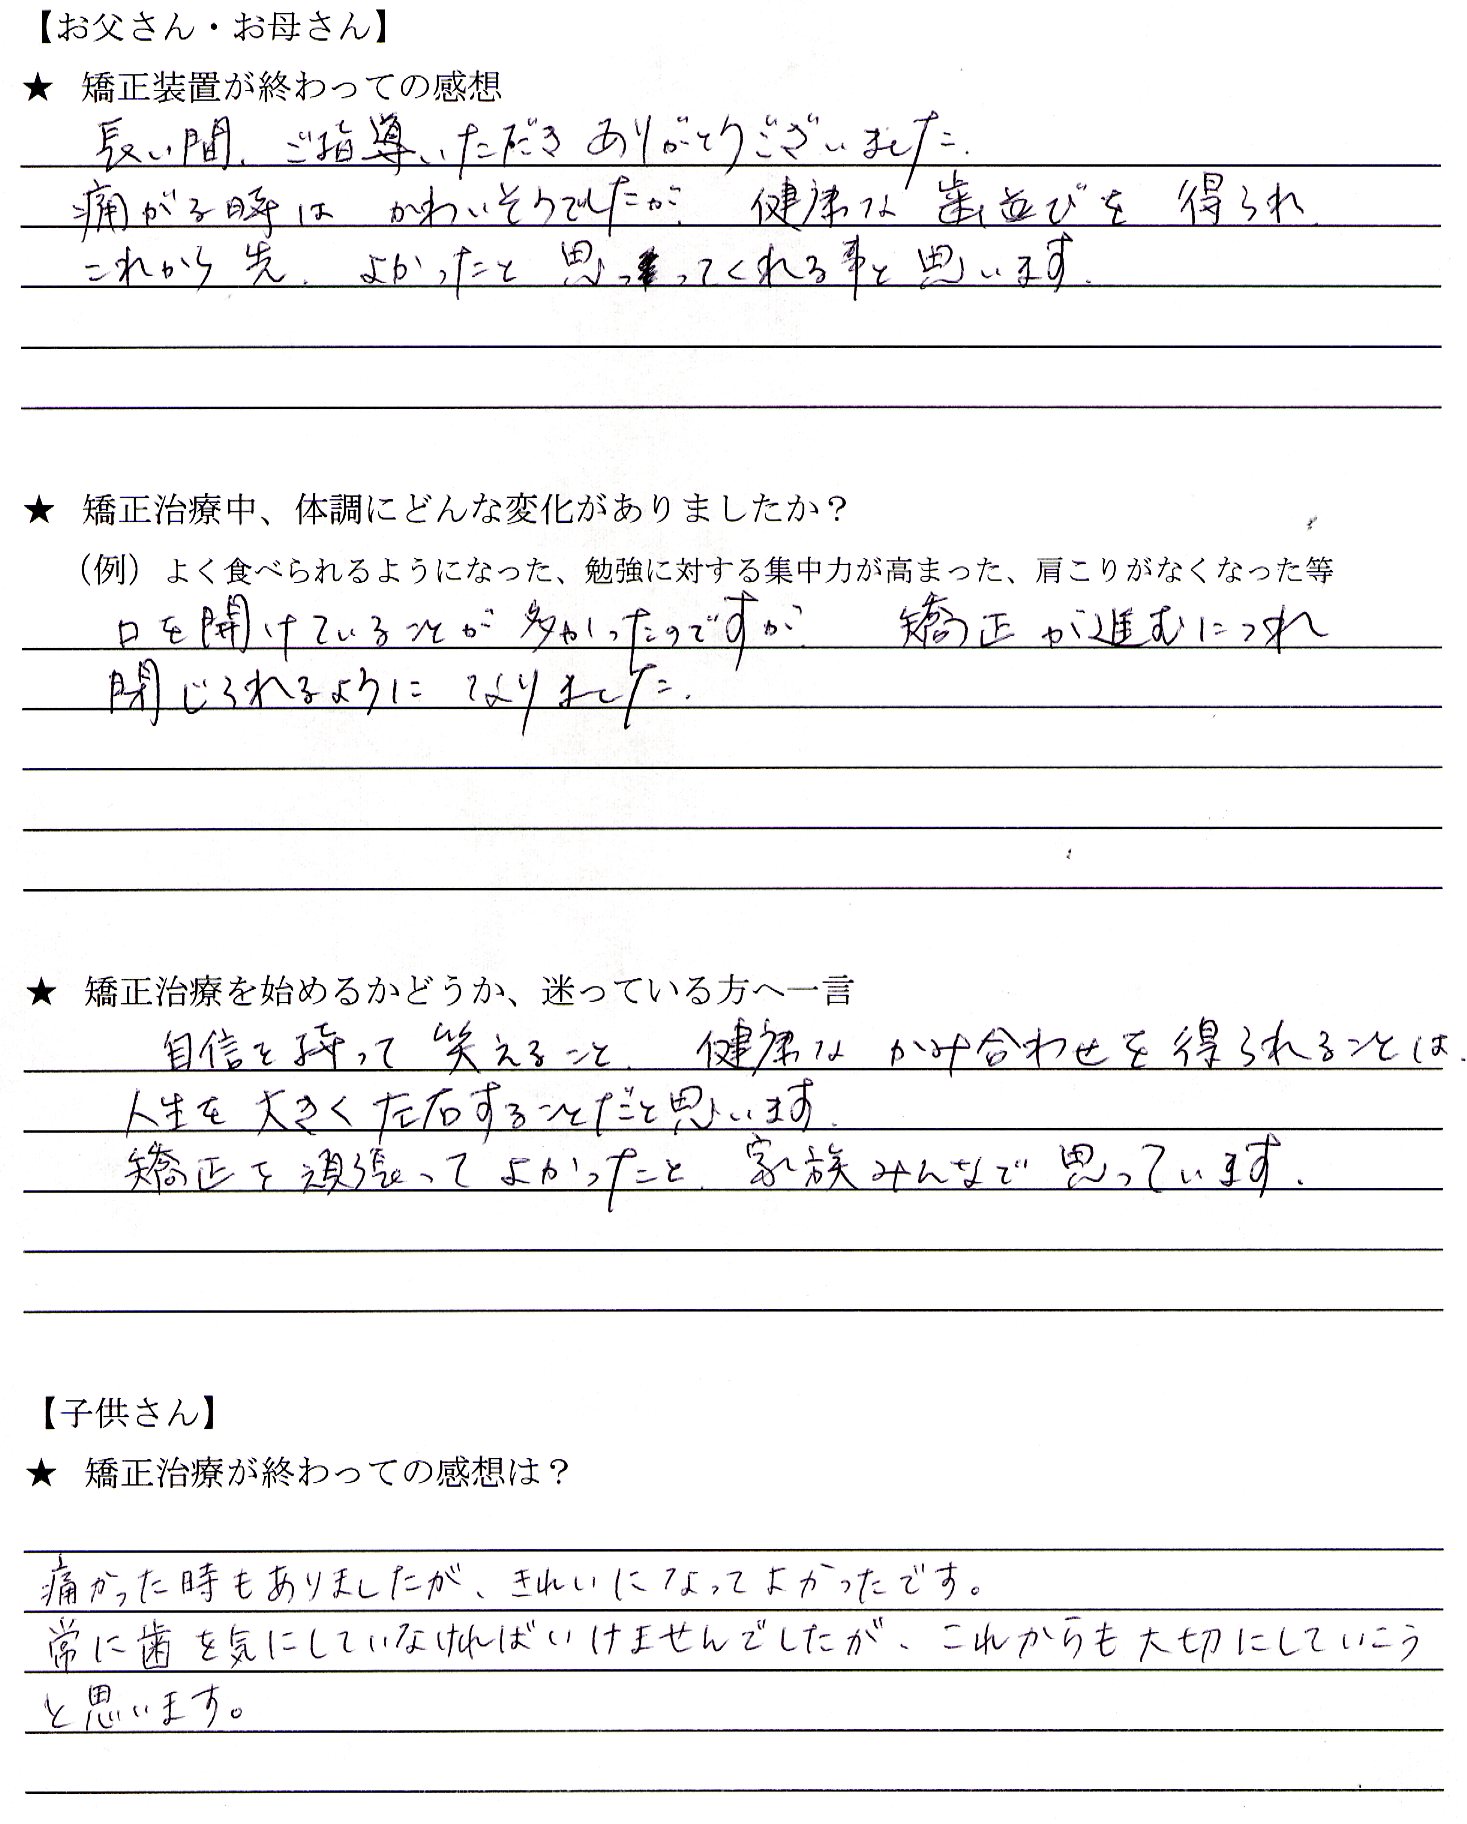 【お父さん・お母さん】
★ 矯正装置が終わっての感想
長い間、ご指導いただきありがとうございました。
痛がる時は かわいそうでしたが、健康な 歯並びを 得られ、
これから先、よかったと 思ってくれる事と思います。
★ 矯正治療中、体調にどんな変化がありましたか？
（例）よく食べられるようになった、勉強に対する集中力が高まった、肩こりがなくなった等
口を開けていることが 多かったのですが、矯正が進むにつれ
閉じられるように なりました。
★ 矯正治療を始めるかどうか、迷っている方へ一言
自信を持って 笑えること、健康な かみ合わせを得られることは、
人生を 大きく左右することだと思います。
矯正を頑張って よかったと、家族みんなで 思っています。
【子供さん】
★ 矯正治療が終わっての感想は？
痛かった時もありましたが、きれいになってよかったです。
常に歯を気にしていなければいけませんでしたが、これからも大切にしていこう
と思います。